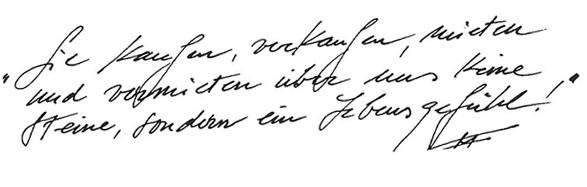 „Sie kaufen, verkaufen, mieten
und vermieten über uns keine
Steine, sondern ein Lebensgefühl!"